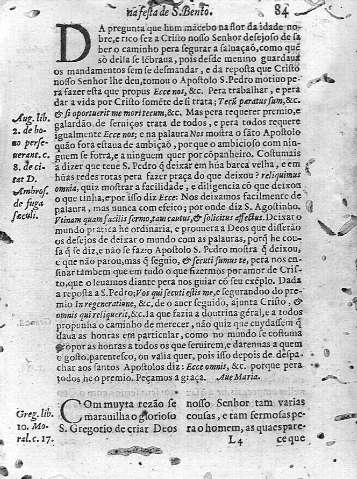 na festa de S. Bento.
84
DA pregunta que hum mãcebo na flor da idade nobre,
e rico fez a Cristo nosso Senhor desejoso de saber
o caminho pera segurar a saluaçaõ, como que
só della se lẽbraua, pois desde menino guardaua
os mandamentos sem se desmandar, e da reposta que Cristo
nosso Senhor lhe deu, tomou o Apostolo S. Pedro motiuo pera
fazer esta que propus Ecce nos, &c. Pera trabalhar, e pera
dar a vida por Cristo somẽte de si trata; Tecũ paratus sum, &c.
& si oportuerit me mori tecum, &c. Mas pera requerer premio, e
galardão de seruiços trata de todos, e pera todos requere
igualmente Ecce nos; e na palaura Nos mostra o sãto Apostolo
quão fora estaua de ambiçaõ, porque o ambicioso com ninguem
se forra, e a ninguem quer por cõpanheiro. Costumais
a dizer que teue S. Pedro q̃ deixar em hũa barca velha, e em
hũas redes rotas pera fazer praça do que deixou? reliquimus
omnia, quiz mostrar a facilidade, e diligencia cõ que deixou
o que tinha, e por isso diz Ecce: Nos deixamos facilmente de
palaura, mas nunca com effeito; por onde diz S. Agostinho.
Vtinam quam facilis sermo, tam cautus, & solicitus affectus. Deixar o
mundo pratica he ordinaria, e prouuera a Deos que disseraõ
os desejos de deixar o mundo com as palauras, porẽ he cousa
q̃ se diz, e não se faz: o Apostolo S. Pedro mostra q̃ deixou,
e que não parou, mas q̃ seguio, & secuti sumus te, pera nos ensinar
tambem que em tudo o que fizermos por amor de Cristo,
que o leuamos diante pera nos guiar co seu exẽplo. Dada
a reposta a S. Pedro; Vos qui secuti estis me, e segurandoo do premio
In regeneratione, &c. de o auer seguido, ajunta Cristo, &
omnis qui reliquerit, &c. la que fazia a doutrina géral, e a todos
propunha o caminho de merecer, não quiz que cuydassem q̃
daua as honras em particular, como no mundo se costuma
epor as honras a todos os que seruirem, e darennas a quem
o gosto, parentesco, ou valia quer, pois isso depois de despachar
aos santos Apostolos diz: Ecce omnis, &c. porque pera
todos he o premio. Peçamos a graça. Aue Maria.
Aug. lib.
2. de bono
perseuerant.
c.
8. de citer
D.
Ambros.
de fuga
sæculi.
Greg. lib.
10. Moral.
c. 17.
COm muyta rezão se
marauilha o glorioso
S. Gregorio de criar Deos
nosso Senhor tam varias
cousas, e tam fermosas pera
o homem, as quaes pare-
L4
ce que